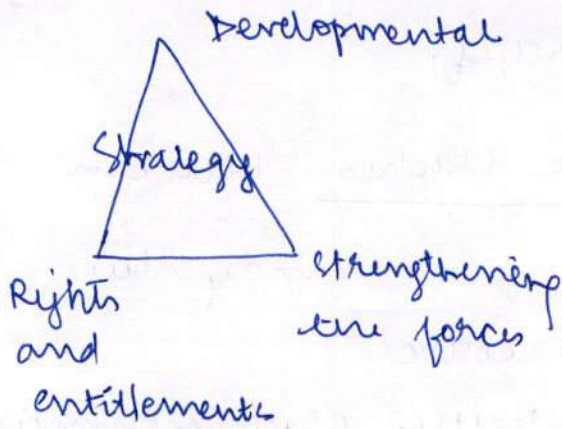 Developmental
Strategy
Rights
and
entitlements
strengthening
the forces